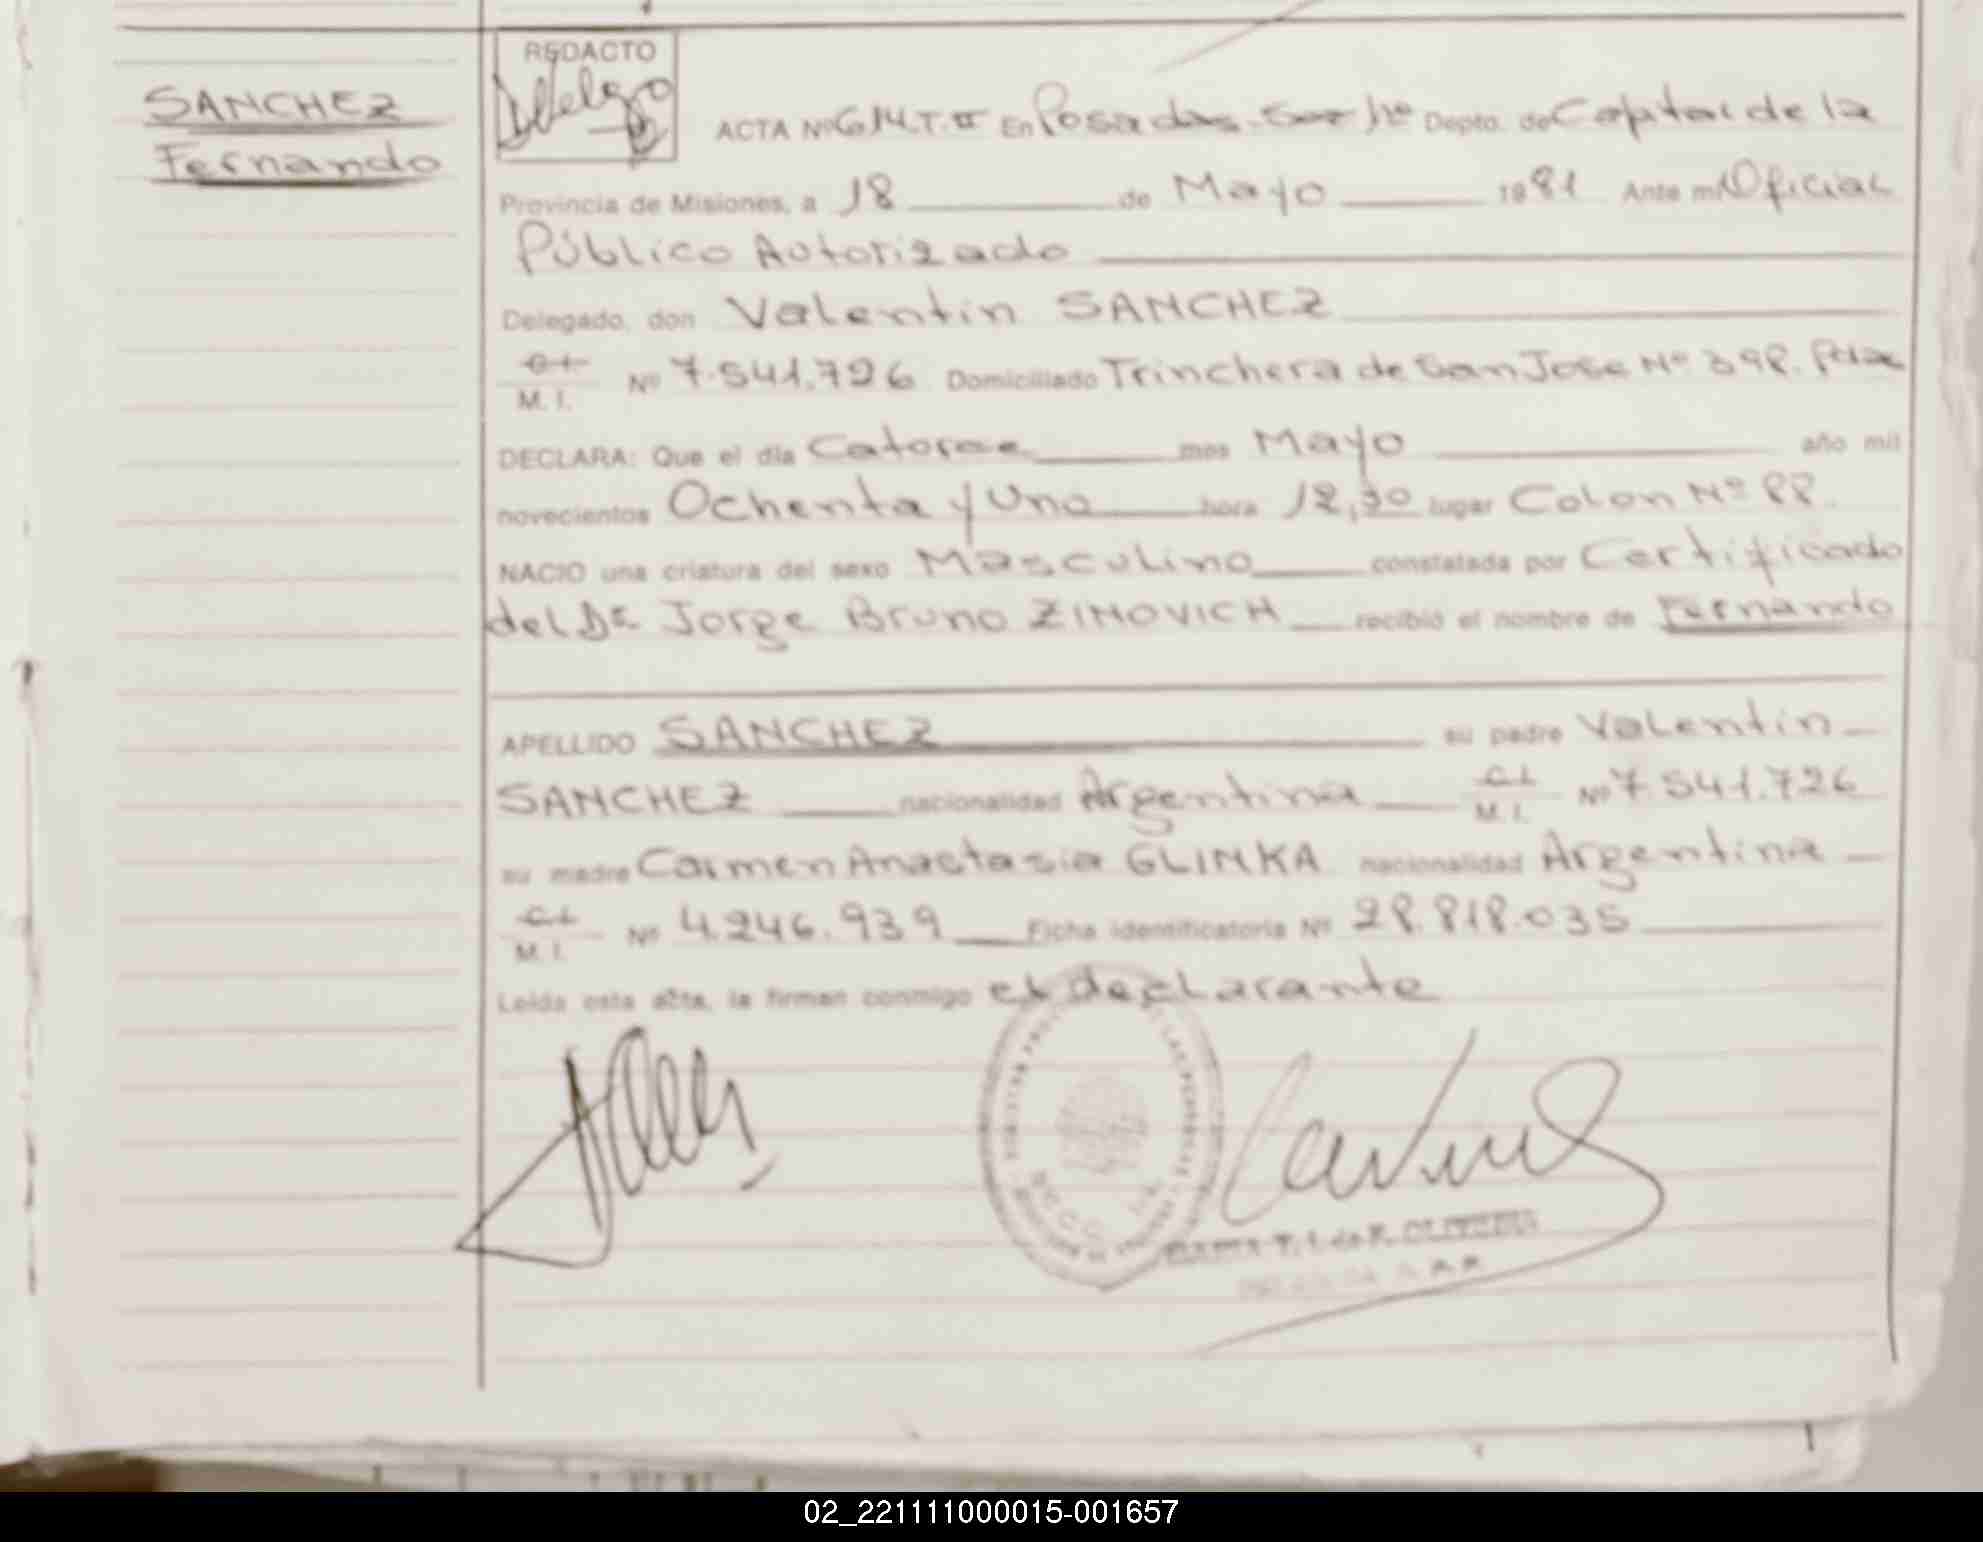 SANCHEZ
Fernando
REDACTO
ACTA Nº 614.T.II En Posadas. Sec 1ª Depto. de Capital de la
Provincia de Misiones, a 18 de Mayo 1981 Ante mí Oficial
Público Autorizado
Delegado, don Valentin SANCHEZ
C.I. M. I. Nº 7.541.726 Domiciliado Trinchera de San Jose Nº 398. Pdas
DECLARA: Que el día Catorce mes Mayo año mil
novecientos Ochenta y Uno hora 12,30 lugar Colon Nº 88.
NACIO una criatura del sexo Masculino constatada por Certificado
del Dr Jorge Bruno ZIMOVICH recibió el nombre de Fernando
APELLIDO SANCHEZ su padre Valentin
SANCHEZ nacionalidad Argentina C.I. M. I. Nº 7.541.726
su madre Carmen Anastasia GLINKA nacionalidad Argentina
C.I. M. I. Nº 4.246.939 Ficha identificatoria Nº 28.818.035
Leída esta acta, la firman conmigo el declarante
02_221111000015-001657